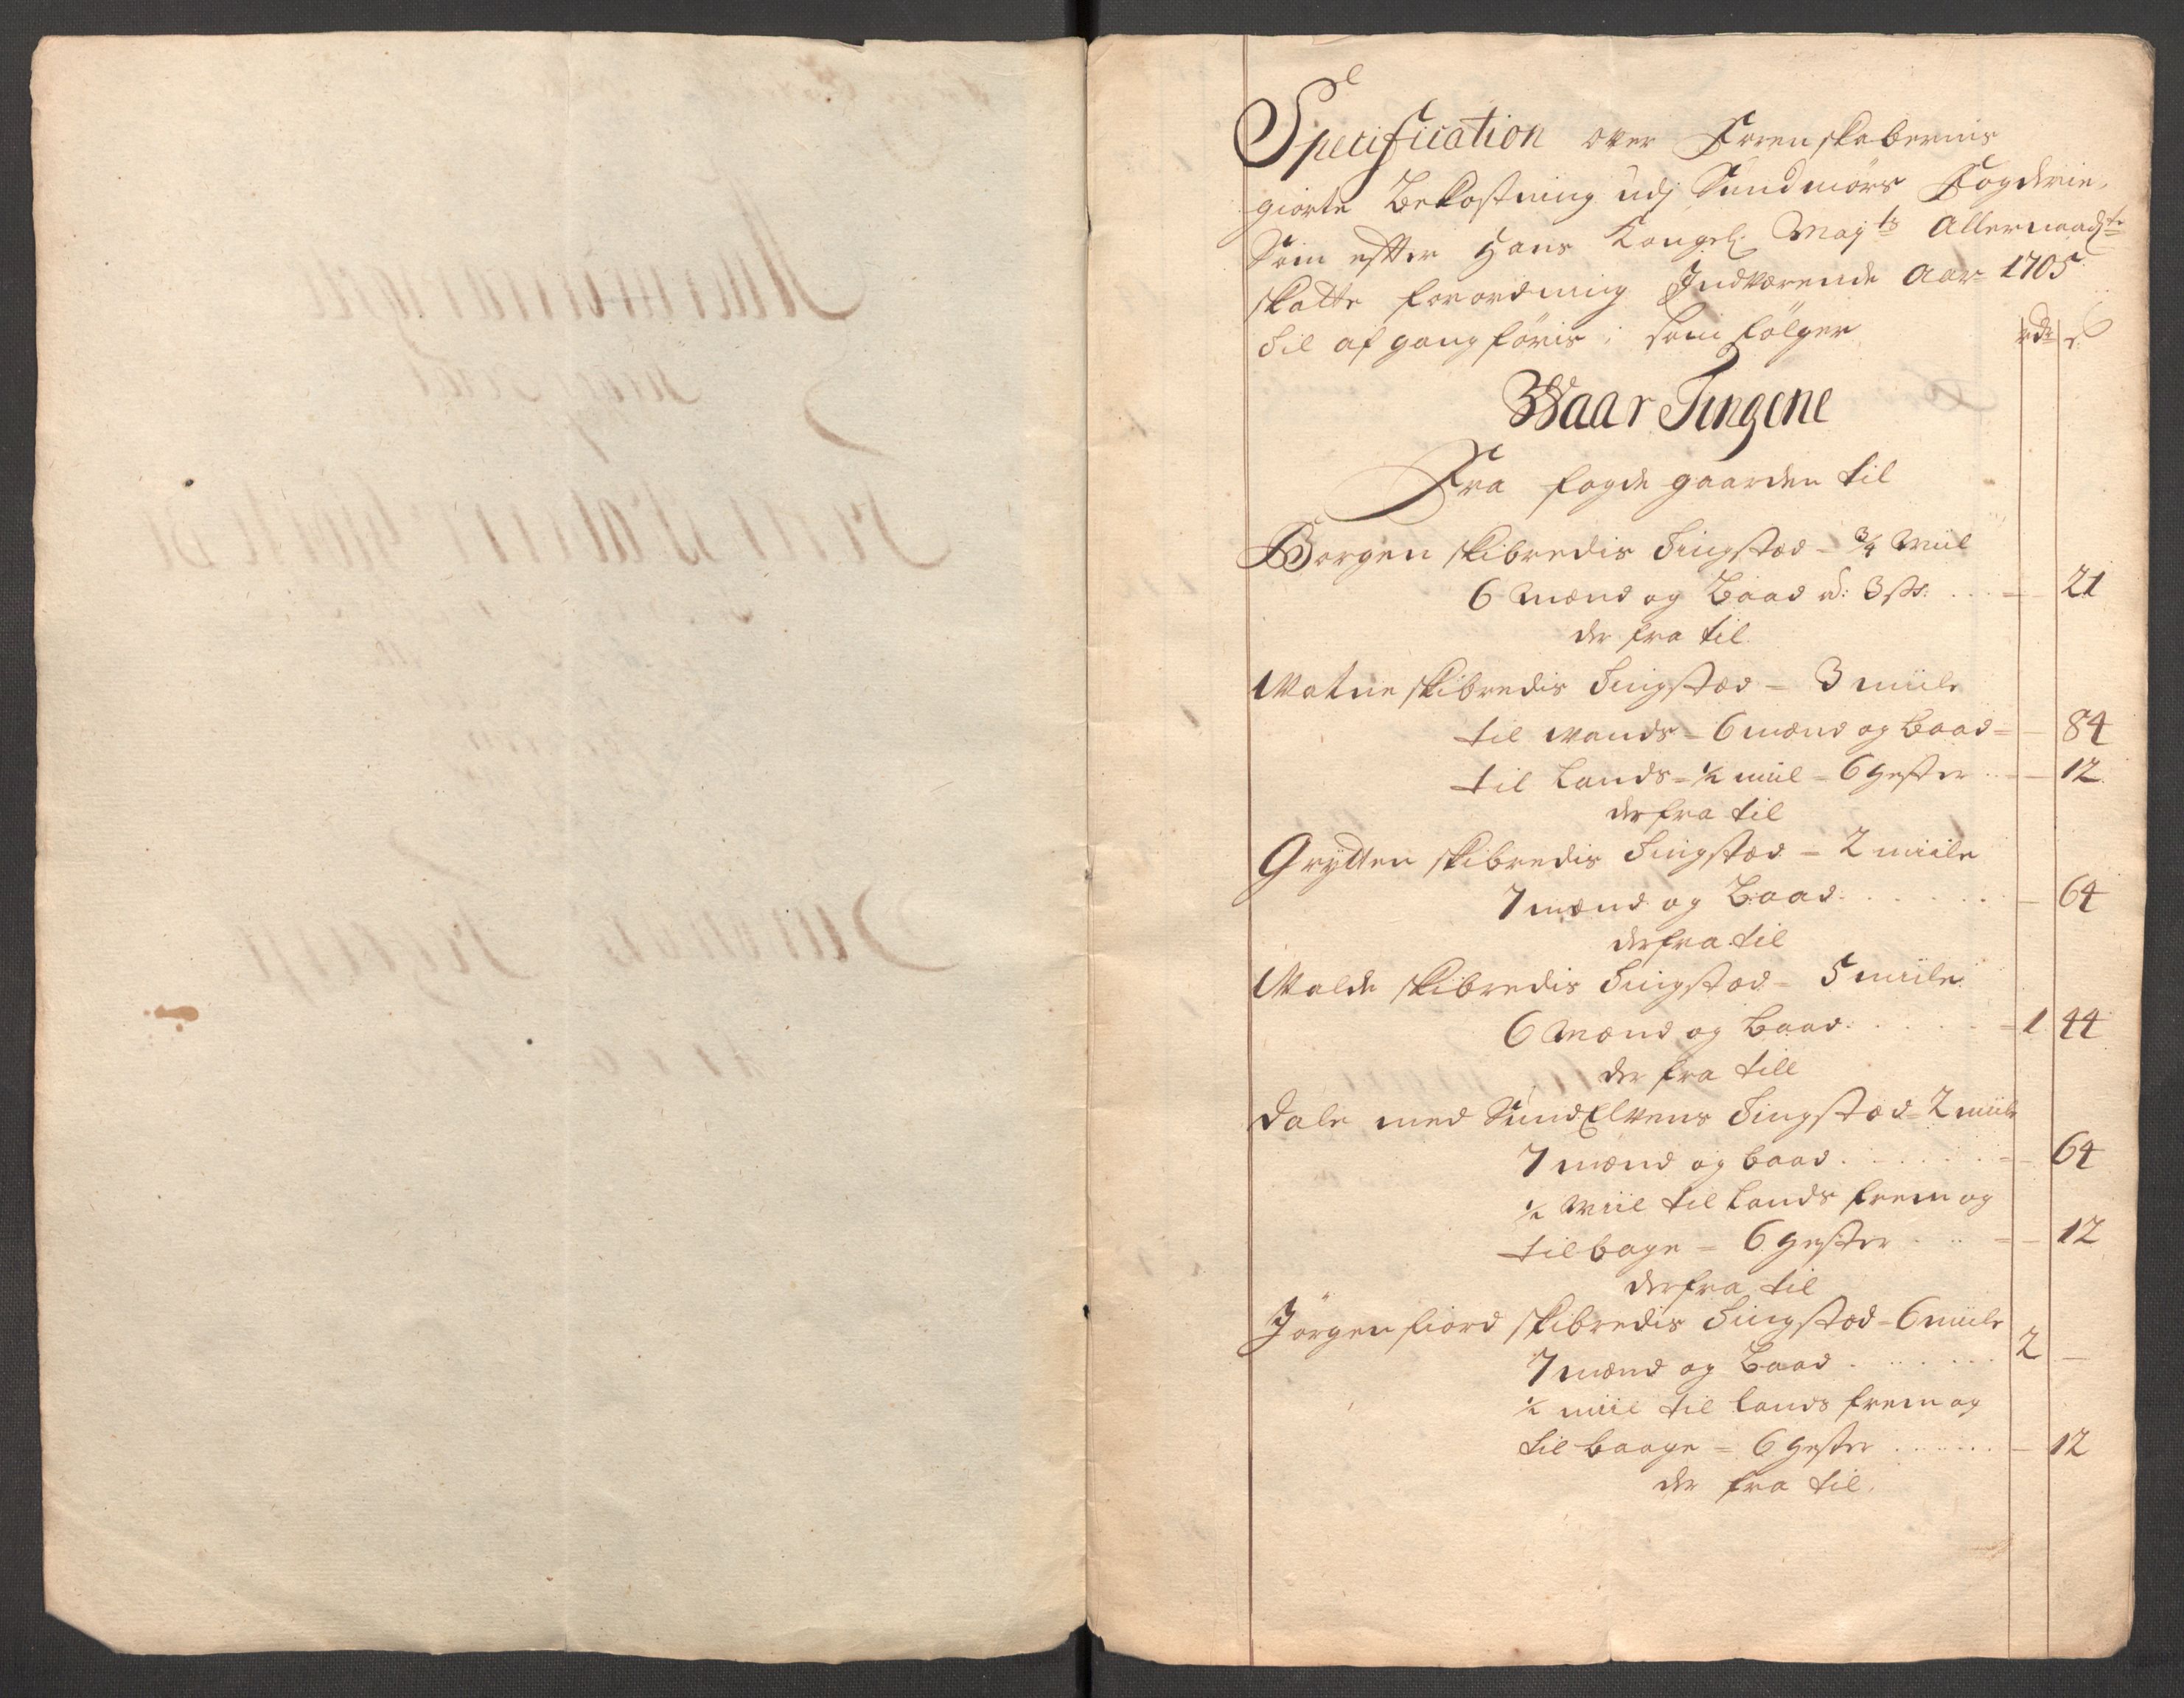 Specification over Forenskabernis
giorte Bekostning udj Sundmørs Fogderie,
Som efter Hans Kongel: Mayts Allernaadste
skatte forordning Indværende Aar 1705
Til afgang føris, som følger
rdr s
Waar Tingene
Fra fogde gaarden til
Borgen skibredis Tingstæd - 3/4 Miil
6 Mænd og Baad a: 3 s: . . . — 21
der fra til
Watne skibredis Tingstæd - 3 miile
til wands - 6 mænd og Baad = — 84
til Lands - 1/2 miil - 6 hester . . — 12
der fra til
Grytten skibredis Tingstæd - 2 miile
7 mænd og Baad . . . . . . — 64
der fra til
Walde skibredis Tingstæd - 5 miile
6 Mænd og Baad . . . . . 1 44
der fra till
Dale med Sundelvens Tingstæd - 2 miile
7 mænd og baad . . . . . . — 64
1/2 Miil til Lands frem og
tilbage - 6 hester . . . — 12
der fra til
Jørgenfiord skibredis Tingstæd - 6 miile
7 mænd og Baad . . . . . . 2 —
1/2 miil til Lands frem og
til baage - 6 hester . . . . . . — 12
der fra til